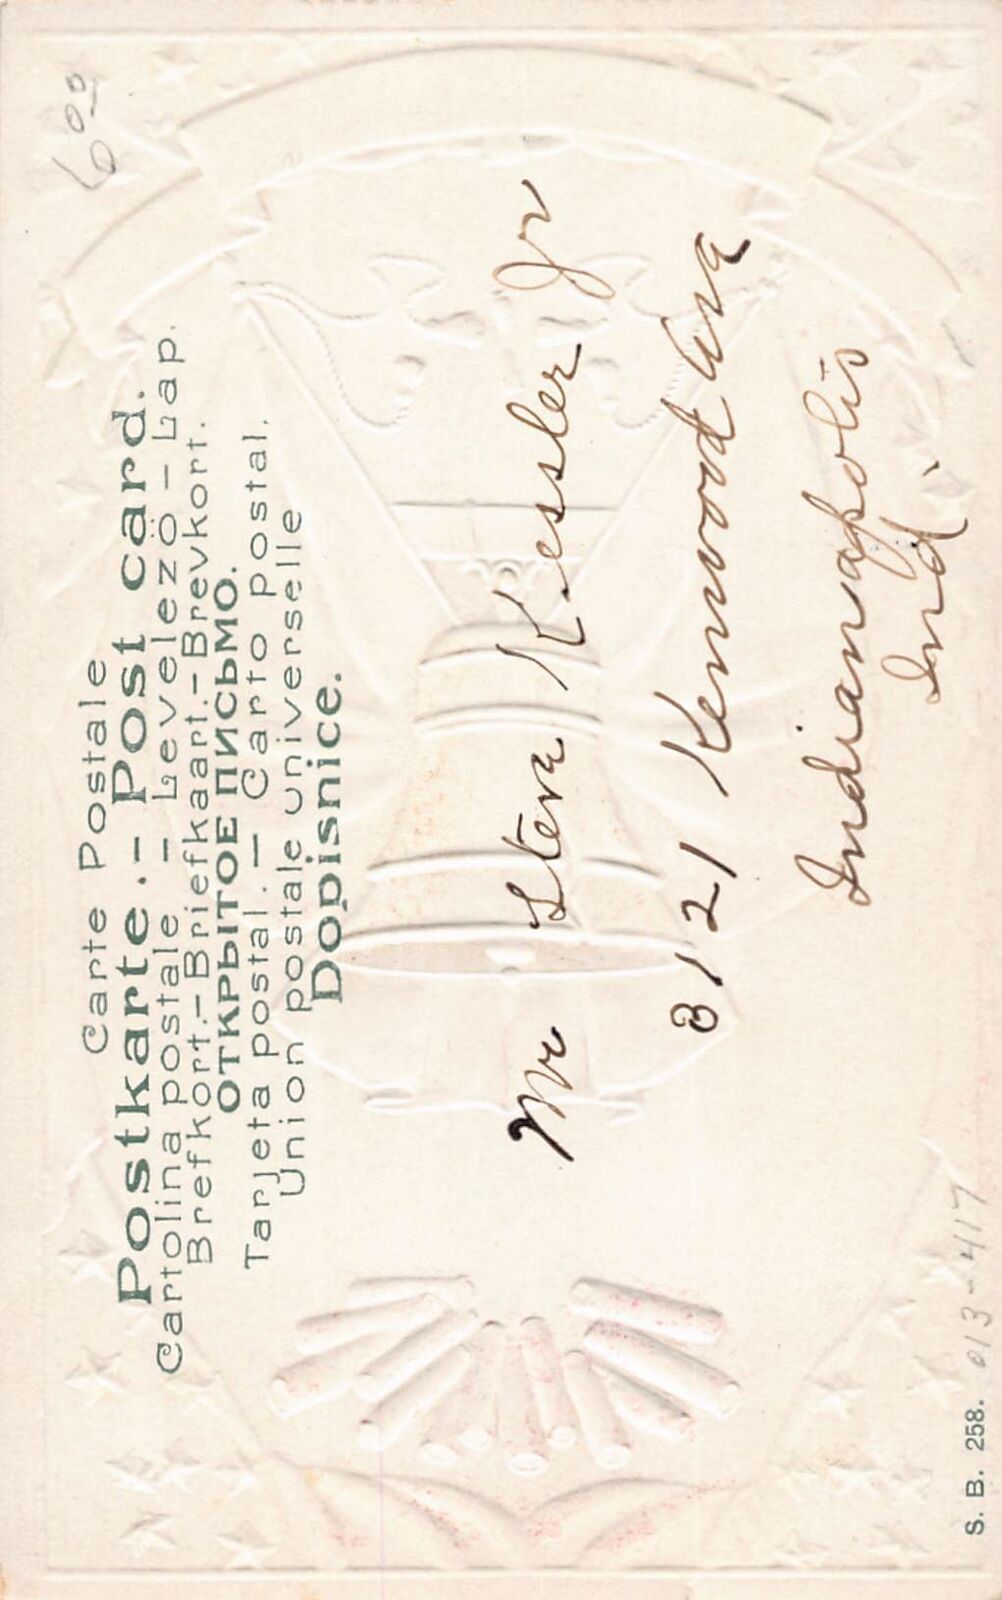 Carte Postale
Postkarte. – Post card.
Cartolina postale – Levelezö – Lap.
Brefkort.–Briefkaart.–Brevkort.
ОТКРЫТОЕ ПИСЬМО.
Tarjeta postal. – Carto postal.
Union postale universelle
Dopisnice.
Mr Steva Kessler Jr
3121 Kenwood Ave
Indianapolis
Ind.
S. B. 258. 013-417
6.00